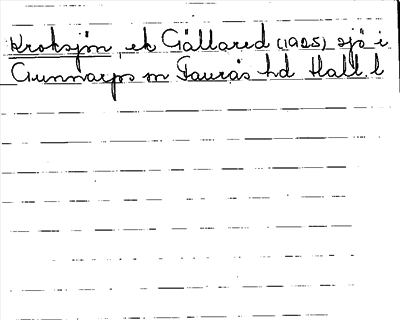 Kroksjön, ek Gällared (1925) sjö i
Gunnarps sn Faurås hd Hall. l